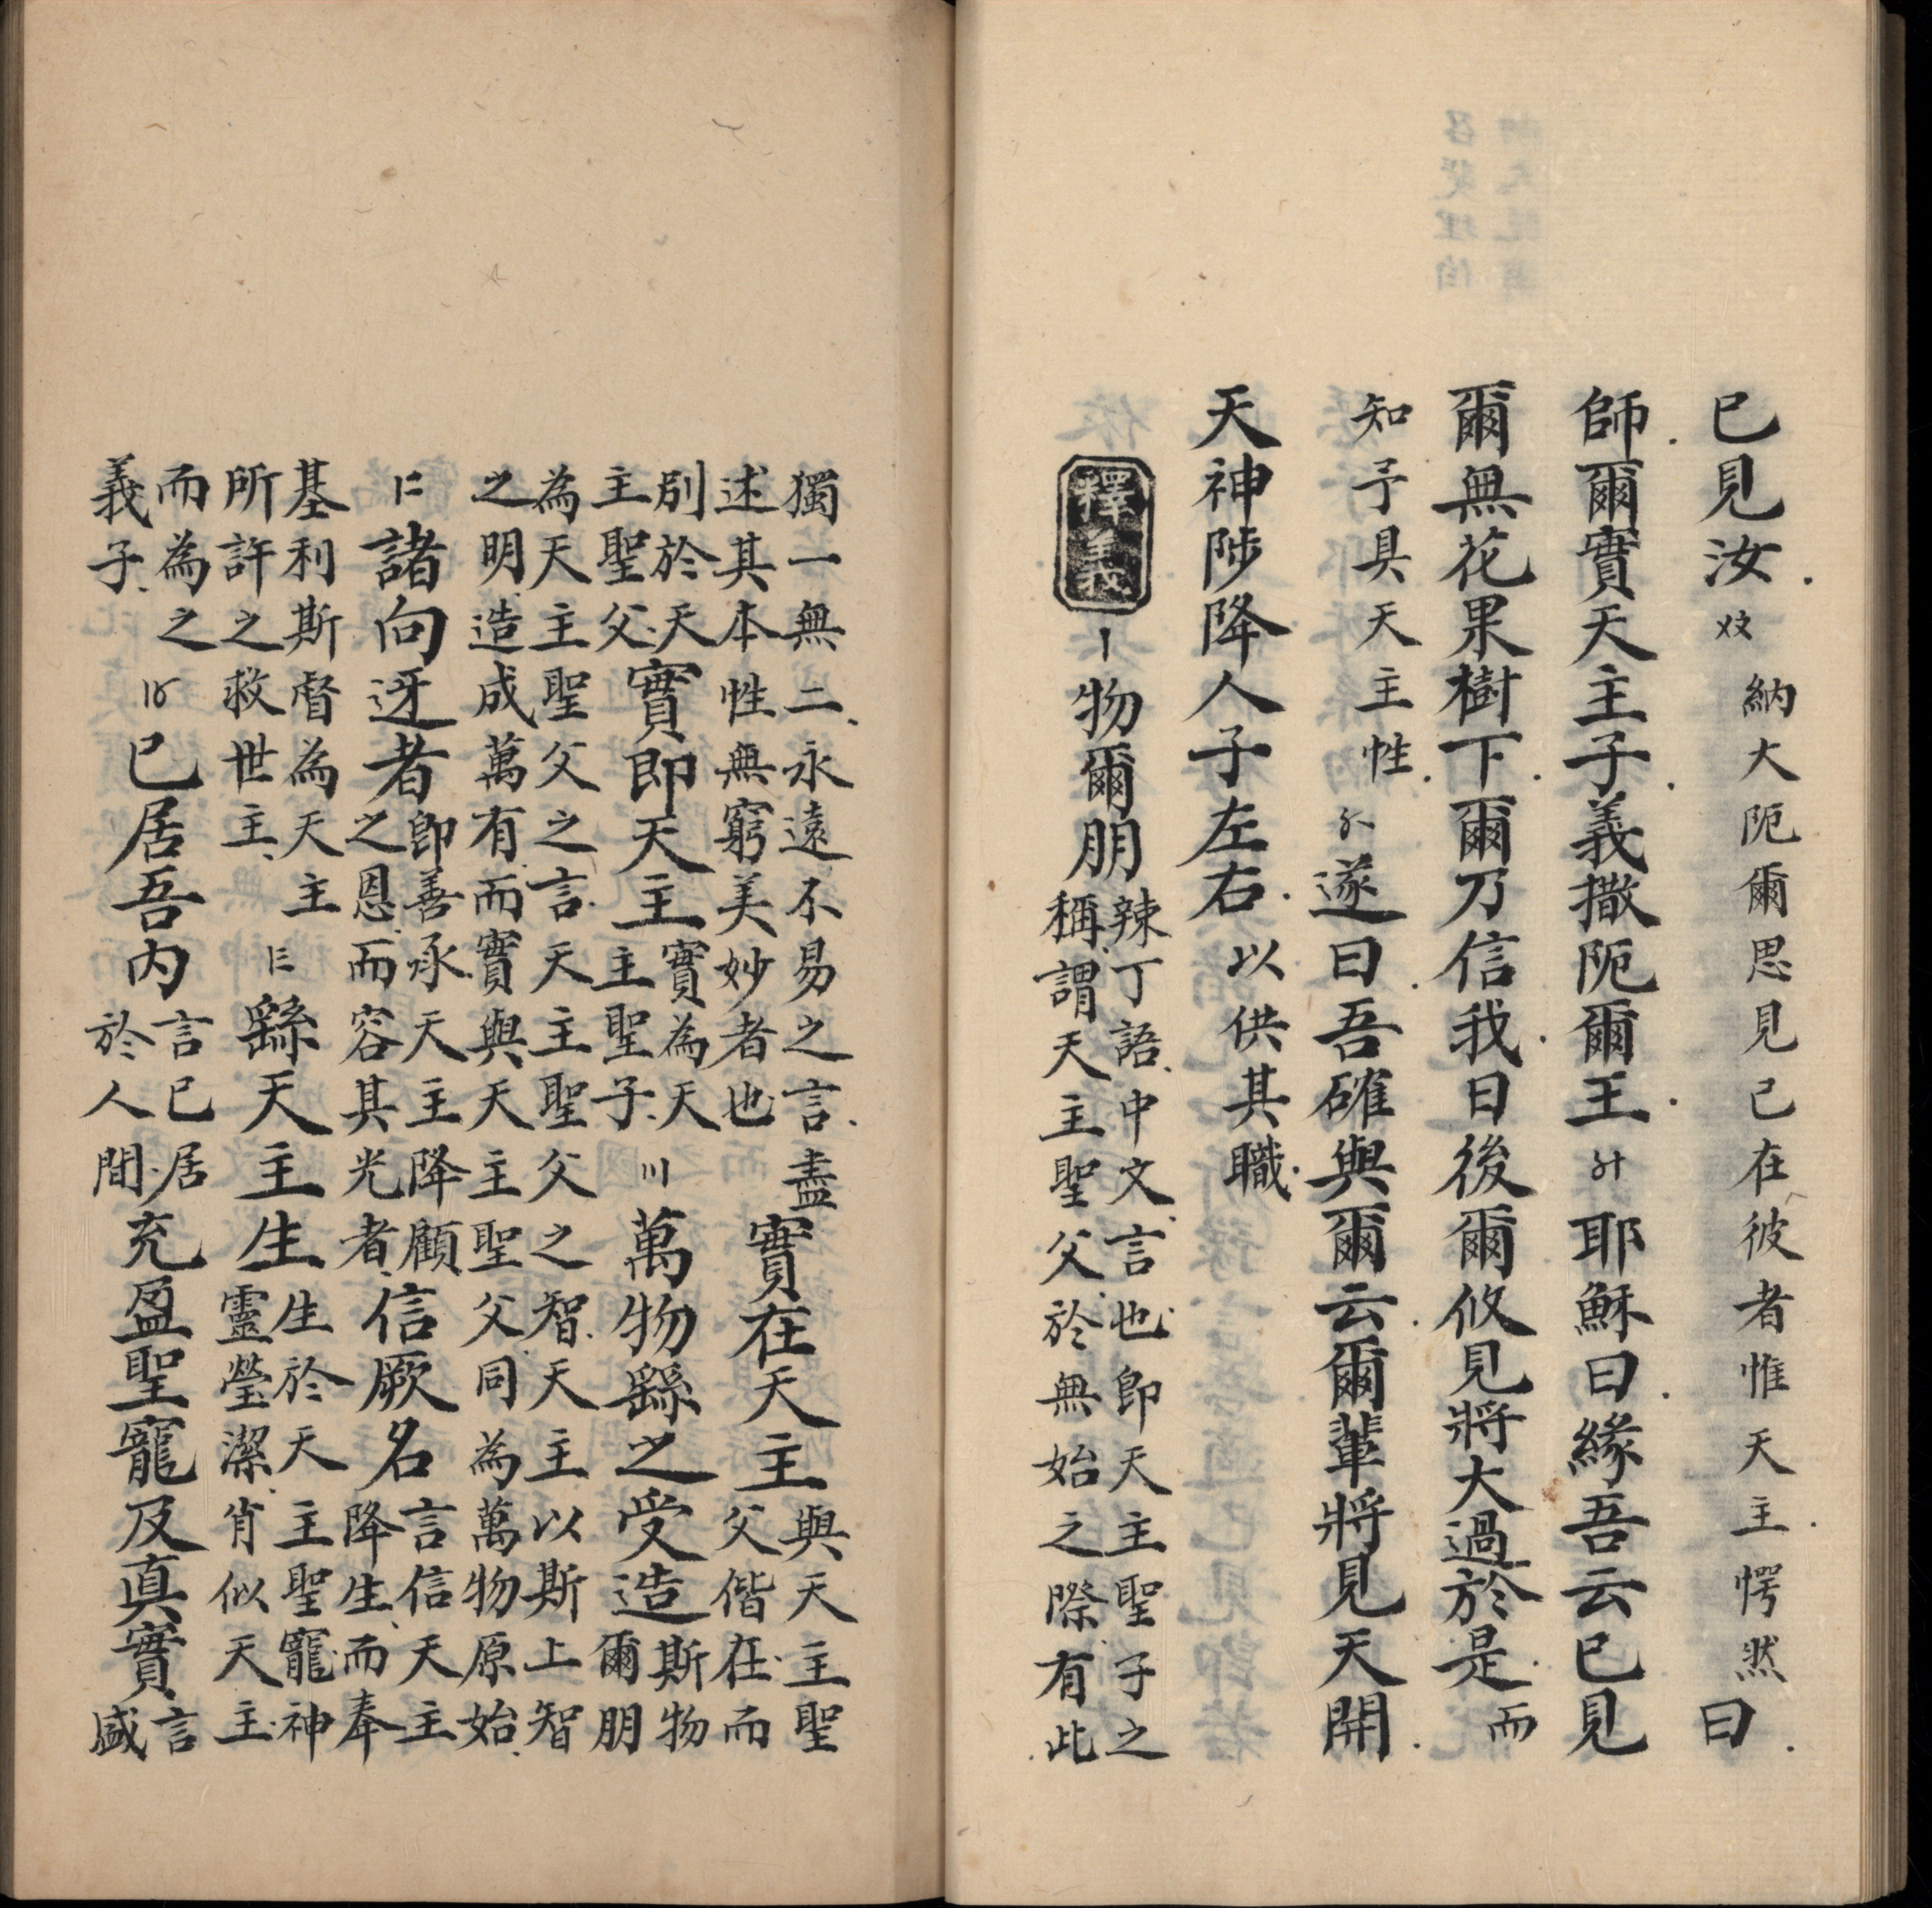 已見汝.〤〩納大阨爾思見己在彼者惟天主愕然曰.
師.爾實天主子.義撒阨爾王.〥十耶穌曰.緣吾云已見
爾無花果樹下.爾乃信我.日後爾攸見將大過於是.而
知予具天主性.〥〡遂曰.吾確與爾云.爾輩將見天開.
天神陟降人子左右.以供其職.
釋義
〡物爾朋
辣丁語中文言也即天主聖子之
稱謂天主聖父於無始之際有此
獨一無二永遠不易之言盡
述其本性無窮美妙者也
實在天主
與天主聖
父偕在而
別於天
主聖父
實即天主
實為天
主聖子
〣萬物繇之受造
斯物
爾朋
為天主聖父之言天主聖父之智天主以斯上智
之明造成萬有而實與天主聖父同為萬物原始
〡二諸向迓者
即善承天主降顧
之恩而容其光者
信厥名
言信天主
降生而奉
基利斯督為天主
所許之救世主
〡三繇天主生
生於天主聖寵神
靈瑩潔肖似天主
而為之
義子
〡〤已居吾內
言已居
於人間
充盈聖寵及真實
言
盛